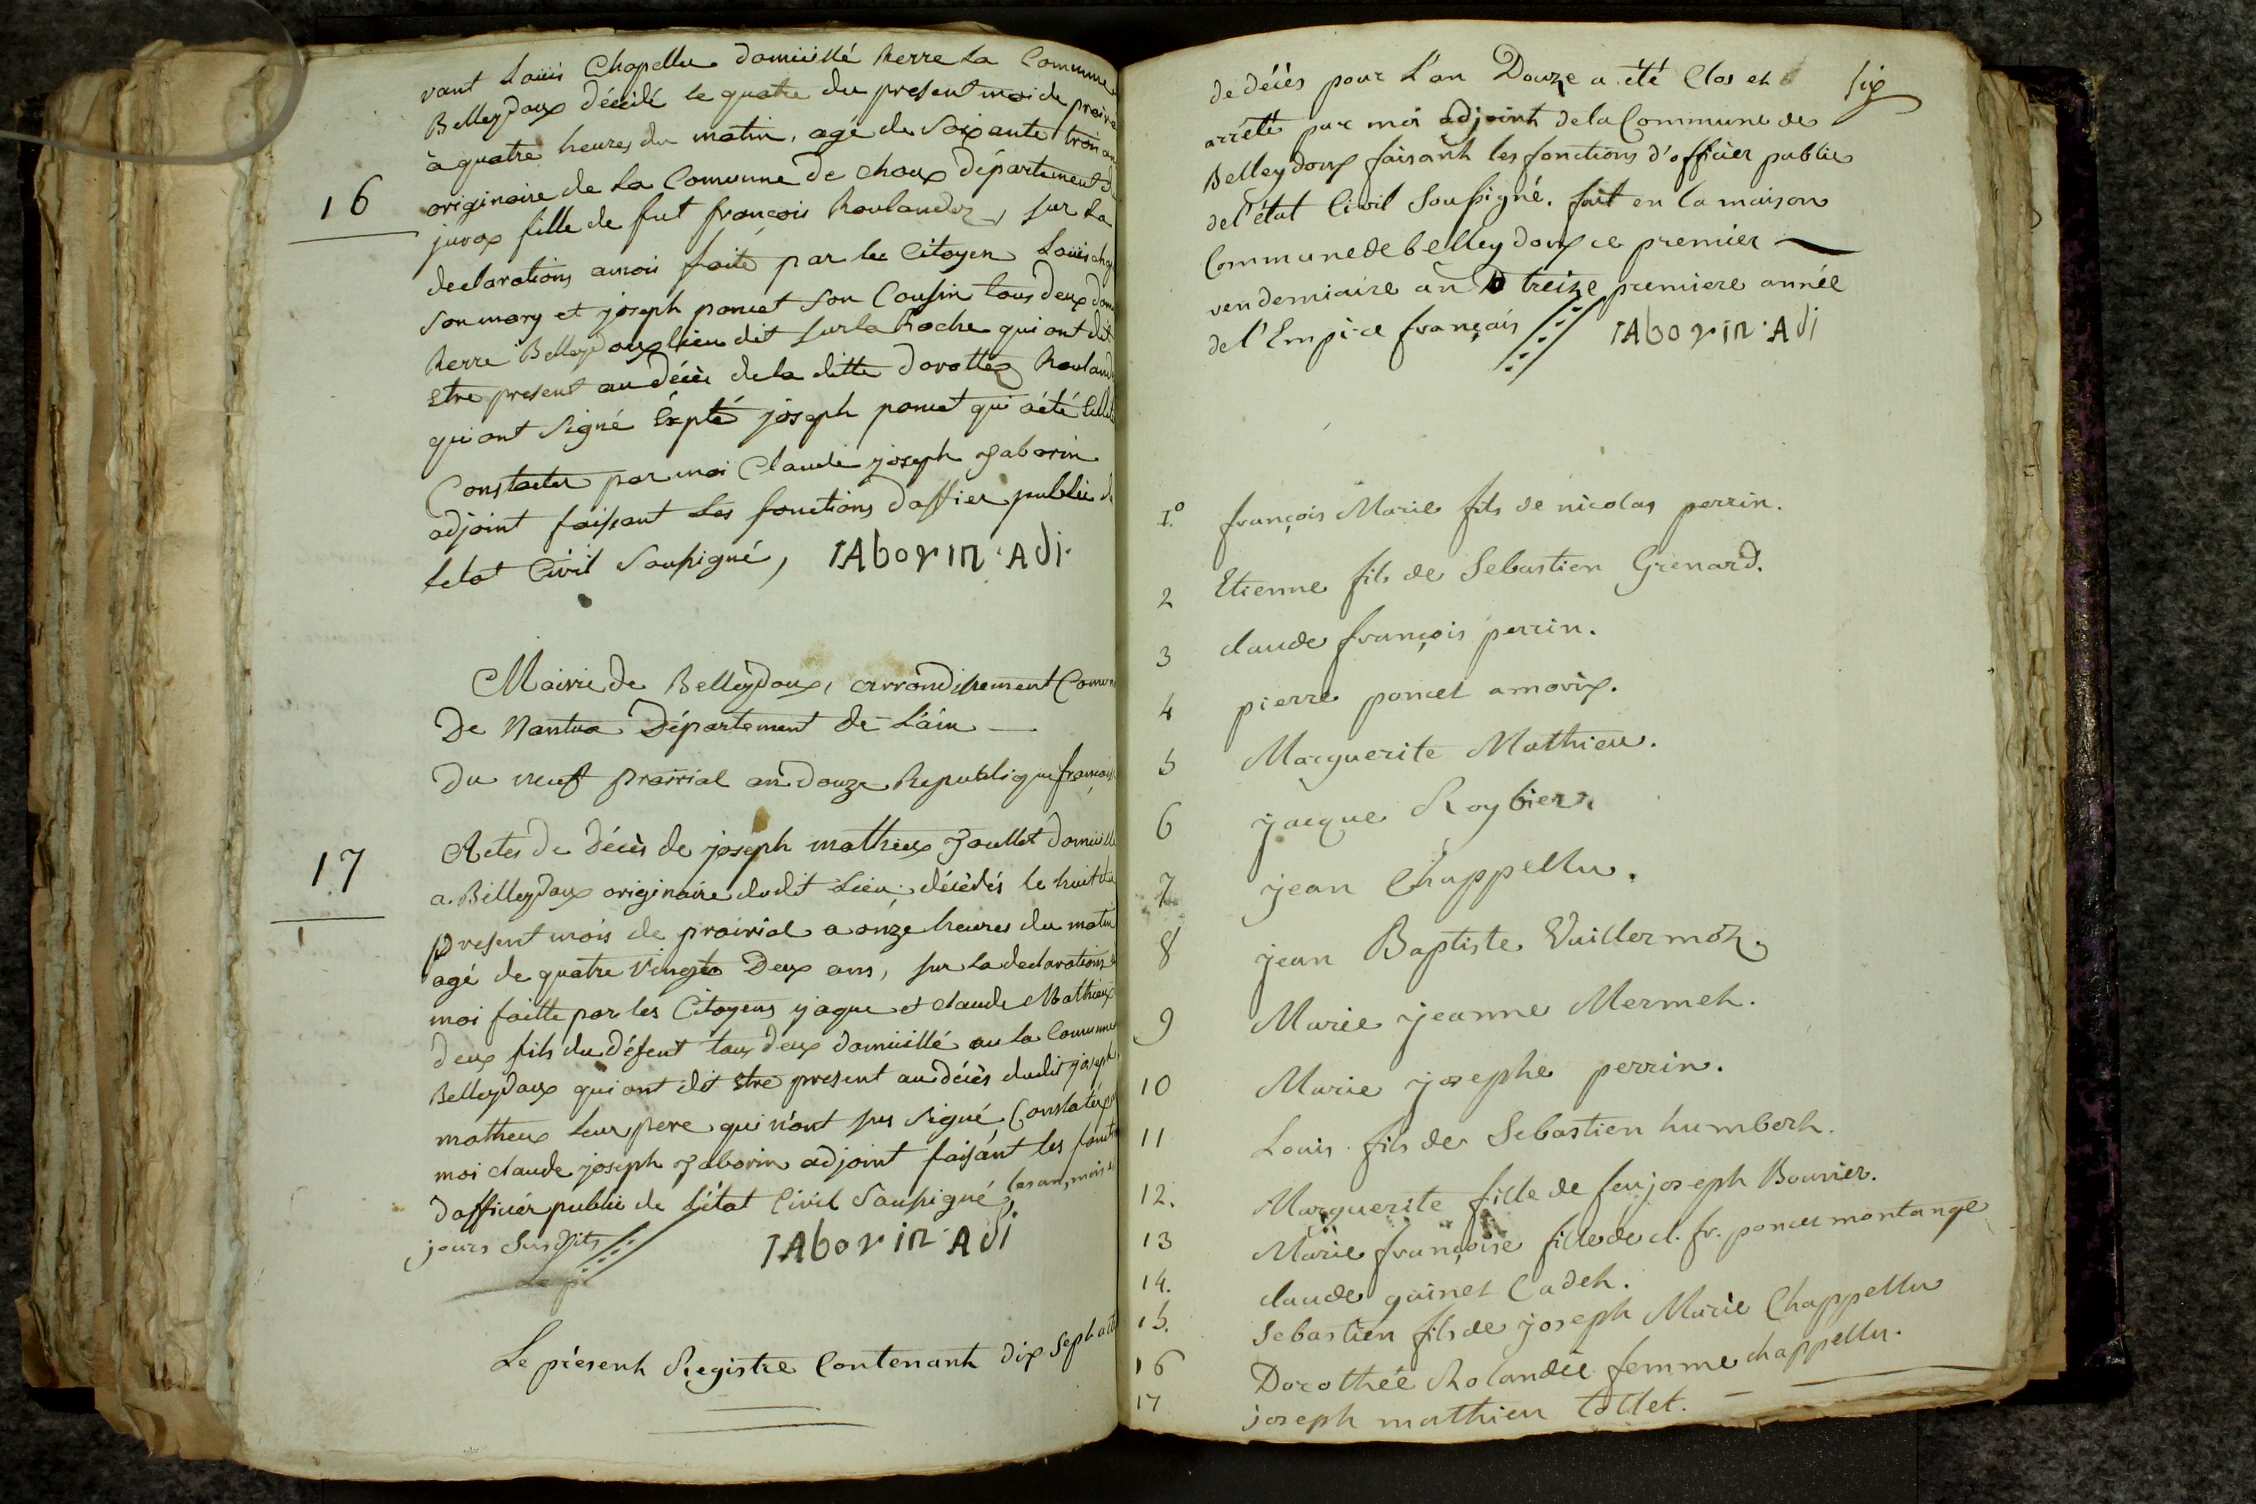 vant Loüis Chapellu domicillé rierre La Commune
Belleydoux décédé le quatre du present moi de prair
à quatre heures du matin, agé de Soixante trois an
16
originaire de La Comunne De choux département d
jurax fille de fut françois Roulandez, sur La
declarations amoi faite par les Citoyen Loüis
Son mary et joseph poncet son Cousin tous deux dom
Rierre Belleydoux lieu dit sur la Roche qui ont dit
Etre present au décès de la ditte dorottez Rouland
qui ont Signé Expté joseph poncet qui a été
Constater par moi Claude joseph Taborin
adjoint faisant Les fonctions doffier public de
letat Civil Soussigné, TAborin Adj.
Mairie de Belleydoux, arrondissement Comun
De Nantua Département de L'ain
Du neuf Prairial an douze Republique français
17
Actes De décès de joseph mathieux Toullet domicillé
a Belleydoux originaire dudit Lieu, décédés le huit du
present mois de prairial a onze heures du matin
agé de quatre Vingts Deux ans, sur La declarations
moi faitte par les Citoyens jaque et claude Mathieux
deux fils du défent tous deux domicillé au la Comunne
Belleydoux qui ont dit Etre present au décès dudit joseph
matheux Leur pere qui n'ont pas signé, Constatér
moi claude joseph Taborin adjoint faisant les foncti
dofficiér public de L'état Civil Soussigné, les an, mois et
jours Susdits TAborin Adj
Le présent Registre Contenant dix Sept acte
de décès pour L'an Douze a été Clos et six
arrêté par moi adjoint de la Commune de
Belleydoux faisant les fonctions d'officier public
de l'état Civil Soussigné. fait en la maison
Commune de belleydoux ce premier
vendemiaire an treize premiere année
de l'Empire français TAborin Adj
1.º françois Marie fils de nicolas perrin.
2 Etienne fils de Sebastien Grenard.
3 claude françois perrin.
4 pierre poncet amorix.
5 Marguerite Mathieu.
6 jacque Roybier.
7 jean Chappellu.
8 jean Baptiste Vuillermoz.
9 Marie jeanne Mermet.
10 Marie josephe perrin.
11 Louis fils de Sebastien humbert.
12. Marguerite fille de feu joseph Bouvier.
13 Marie françoise fille de cl. fr. poncet montange
14. claude goinet Cadet.
15. Sebastien fils de joseph Marie Chappellu
16 Dorothée Rolandée femme chappellu.
17 joseph mathieu tollet.